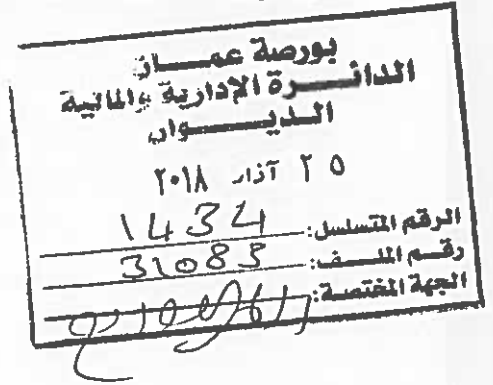 بورصة عمـــان
الدائـــرة الإدارية والمالية
الديـــوان
٢٥ آذار ٢٠١٨
الرقم المتسلسل: 1434
رقم الملف: 31083
الجهة المختصة: